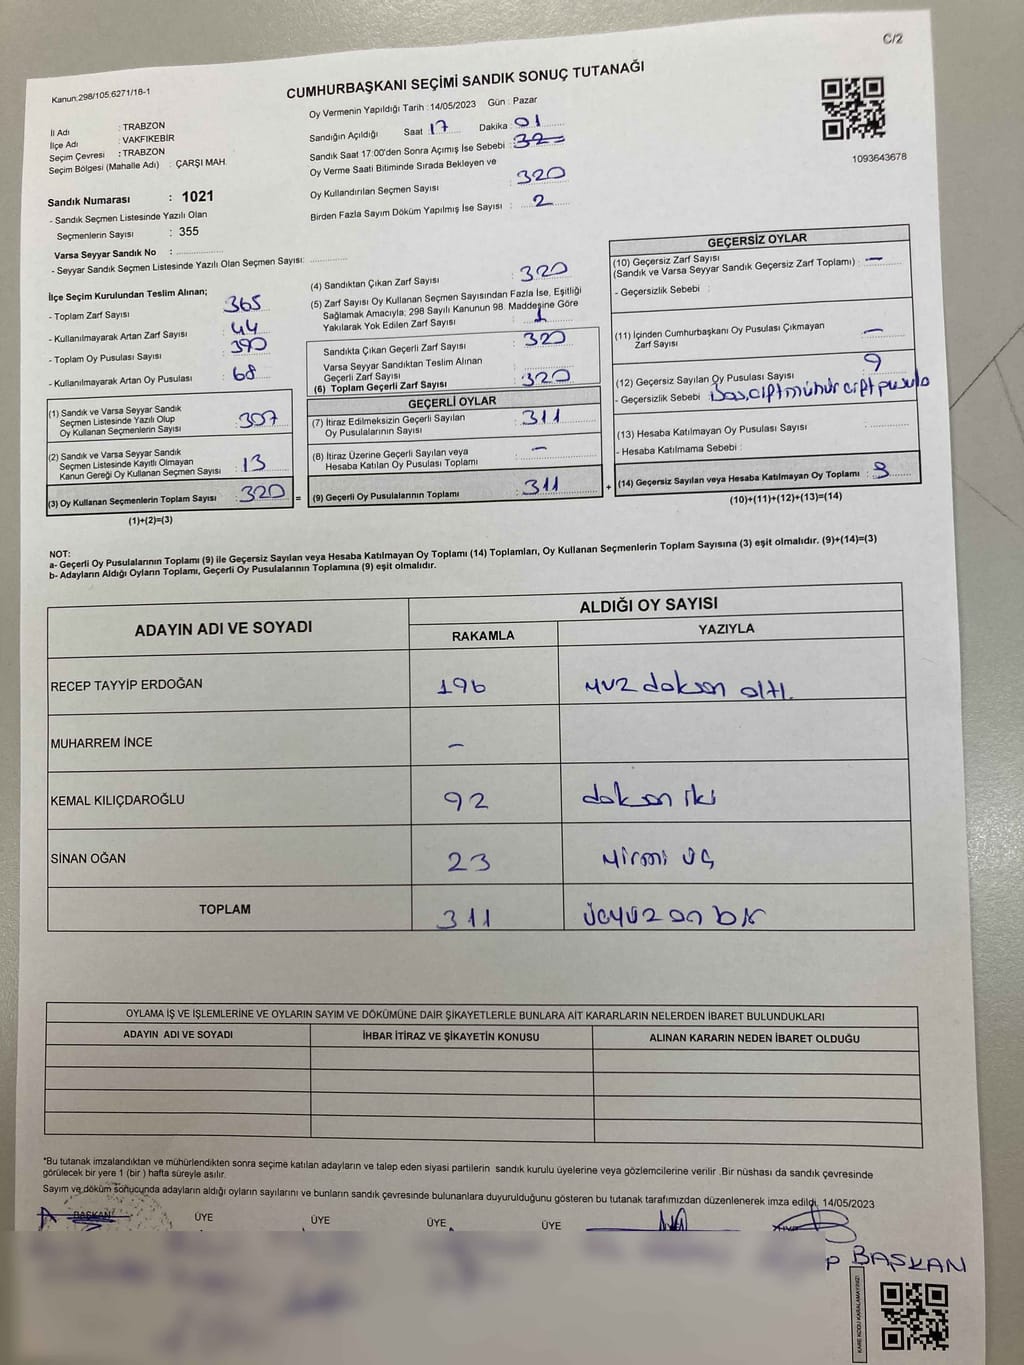 C/2
Kanun:298/105;6271/18-1
CUMHURBAŞKANI SEÇİMİ SANDIK SONUÇ TUTANAĞI
Oy Vermenin Yapıldığı Tarih : 14/05/2023 Gün : Pazar
İl Adı : TRABZON
İlçe Adı : VAKFIKEBİR
Seçim Çevresi : TRABZON
Seçim Bölgesi (Mahalle Adı) : ÇARŞI MAH.
Sandık Numarası : 1021
- Sandık Seçmen Listesinde Yazılı Olan
Seçmenlerin Sayısı : 355
Varsa Seyyar Sandık No :
- Seyyar Sandık Seçmen Listesinde Yazılı Olan Seçmen Sayısı:
Sandığın Açıldığı Saat 17 Dakika : 01
Sandık Saat 17:00'den Sonra Açımış İse Sebebi :
Oy Verme Saati Bitiminde Sırada Bekleyen ve
Oy Kullandırılan Seçmen Sayısı : 320
Birden Fazla Sayım Döküm Yapılmış İse Sayısı : 2
1093643678
İlçe Seçim Kurulundan Teslim Alınan;
- Toplam Zarf Sayısı : 365
- Kullanılmayarak Artan Zarf Sayısı : 44
- Toplam Oy Pusulası Sayısı : 390
- Kullanılmayarak Artan Oy Pusulası : 68
(1) Sandık ve Varsa Seyyar Sandık
Seçmen Listesinde Yazılı Olup
Oy Kullanan Seçmenlerin Sayısı : 307
(2) Sandık ve Varsa Seyyar Sandık
Seçmen Listesinde Kayıtlı Olmayan
Kanun Gereği Oy Kullanan Seçmen Sayısı : 13
(3) Oy Kullanan Seçmenlerin Toplam Sayısı : 320 =
(1)+(2)=(3)
(4) Sandıktan Çıkan Zarf Sayısı : 320
(5) Zarf Sayısı Oy Kullanan Seçmen Sayısından Fazla İse, Eşitliği
Sağlamak Amacıyla; 298 Sayılı Kanunun 98. Maddesine Göre
Yakılarak Yok Edilen Zarf Sayısı : 1
Sandıkta Çıkan Geçerli Zarf Sayısı : 320
Varsa Seyyar Sandıktan Teslim Alınan
Geçerli Zarf Sayısı
(6) Toplam Geçerli Zarf Sayısı : 320
GEÇERLİ OYLAR
(7) İtiraz Edilmeksizin Geçerli Sayılan
Oy Pusulalarının Sayısı : 311
(8) İtiraz Üzerine Geçerli Sayılan veya
Hesaba Katılan Oy Pusulası Toplamı : —
(9) Geçerli Oy Pusulalarının Toplamı : 311 +
GEÇERSİZ OYLAR
(10) Geçersiz Zarf Sayısı
(Sandık ve Varsa Seyyar Sandık Geçersiz Zarf Toplamı) : —
- Geçersizlik Sebebi :
(11) İçinden Cumhurbaşkanı Oy Pusulası Çıkmayan
Zarf Sayısı : —
(12) Geçersiz Sayılan Oy Pusulası Sayısı : 9
- Geçersizlik Sebebi : Boş, çift mühür çift pusula
(13) Hesaba Katılmayan Oy Pusulası Sayısı :
- Hesaba Katılmama Sebebi :
(14) Geçersiz Sayılan veya Hesaba Katılmayan Oy Toplamı : 9
(10)+(11)+(12)+(13)=(14)
NOT:
a- Geçerli Oy Pusulalarının Toplamı (9) ile Geçersiz Sayılan veya Hesaba Katılmayan Oy Toplamı (14) Toplamları, Oy Kullanan Seçmenlerin Toplam Sayısına (3) eşit olmalıdır. (9)+(14)=(3)
b- Adayların Aldığı Oyların Toplamı, Geçerli Oy Pusulalarının Toplamına (9) eşit olmalıdır.
ADAYIN ADI VE SOYADI ALDIĞI OY SAYISI
RAKAMLA YAZIYLA
RECEP TAYYİP ERDOĞAN 196 yüz doksan altı.
MUHARREM İNCE —
KEMAL KILIÇDAROĞLU 92 doksan iki
SİNAN OĞAN 23 yirmi üç
TOPLAM 311 üçyüz on bir
OYLAMA İŞ VE İŞLEMLERİNE VE OYLARIN SAYIM VE DÖKÜMÜNE DAİR ŞİKAYETLERLE BUNLARA AİT KARARLARIN NELERDEN İBARET BULUNDUKLARI
ADAYIN ADI VE SOYADI İHBAR İTİRAZ VE ŞİKAYETİN KONUSU ALINAN KARARIN NEDEN İBARET OLDUĞU
*Bu tutanak imzalandıktan ve mühürlendikten sonra seçime katılan adayların ve talep eden siyasi partilerin sandık kurulu üyelerine veya gözlemcilerine verilir .Bir nüshası da sandık çevresinde
görülecek bir yere 1 (bir ) hafta süreyle asılır.
Sayım ve döküm sonucunda adayların aldığı oyların sayılarını ve bunların sandık çevresinde bulunanlara duyurulduğunu gösteren bu tutanak tarafımızdan düzenlenerek imza edildi. 14/05/2023
BAŞKAN ÜYE ÜYE ÜYE ÜYE
BAŞKAN
KARE KODU KARALAMAYINIZ!